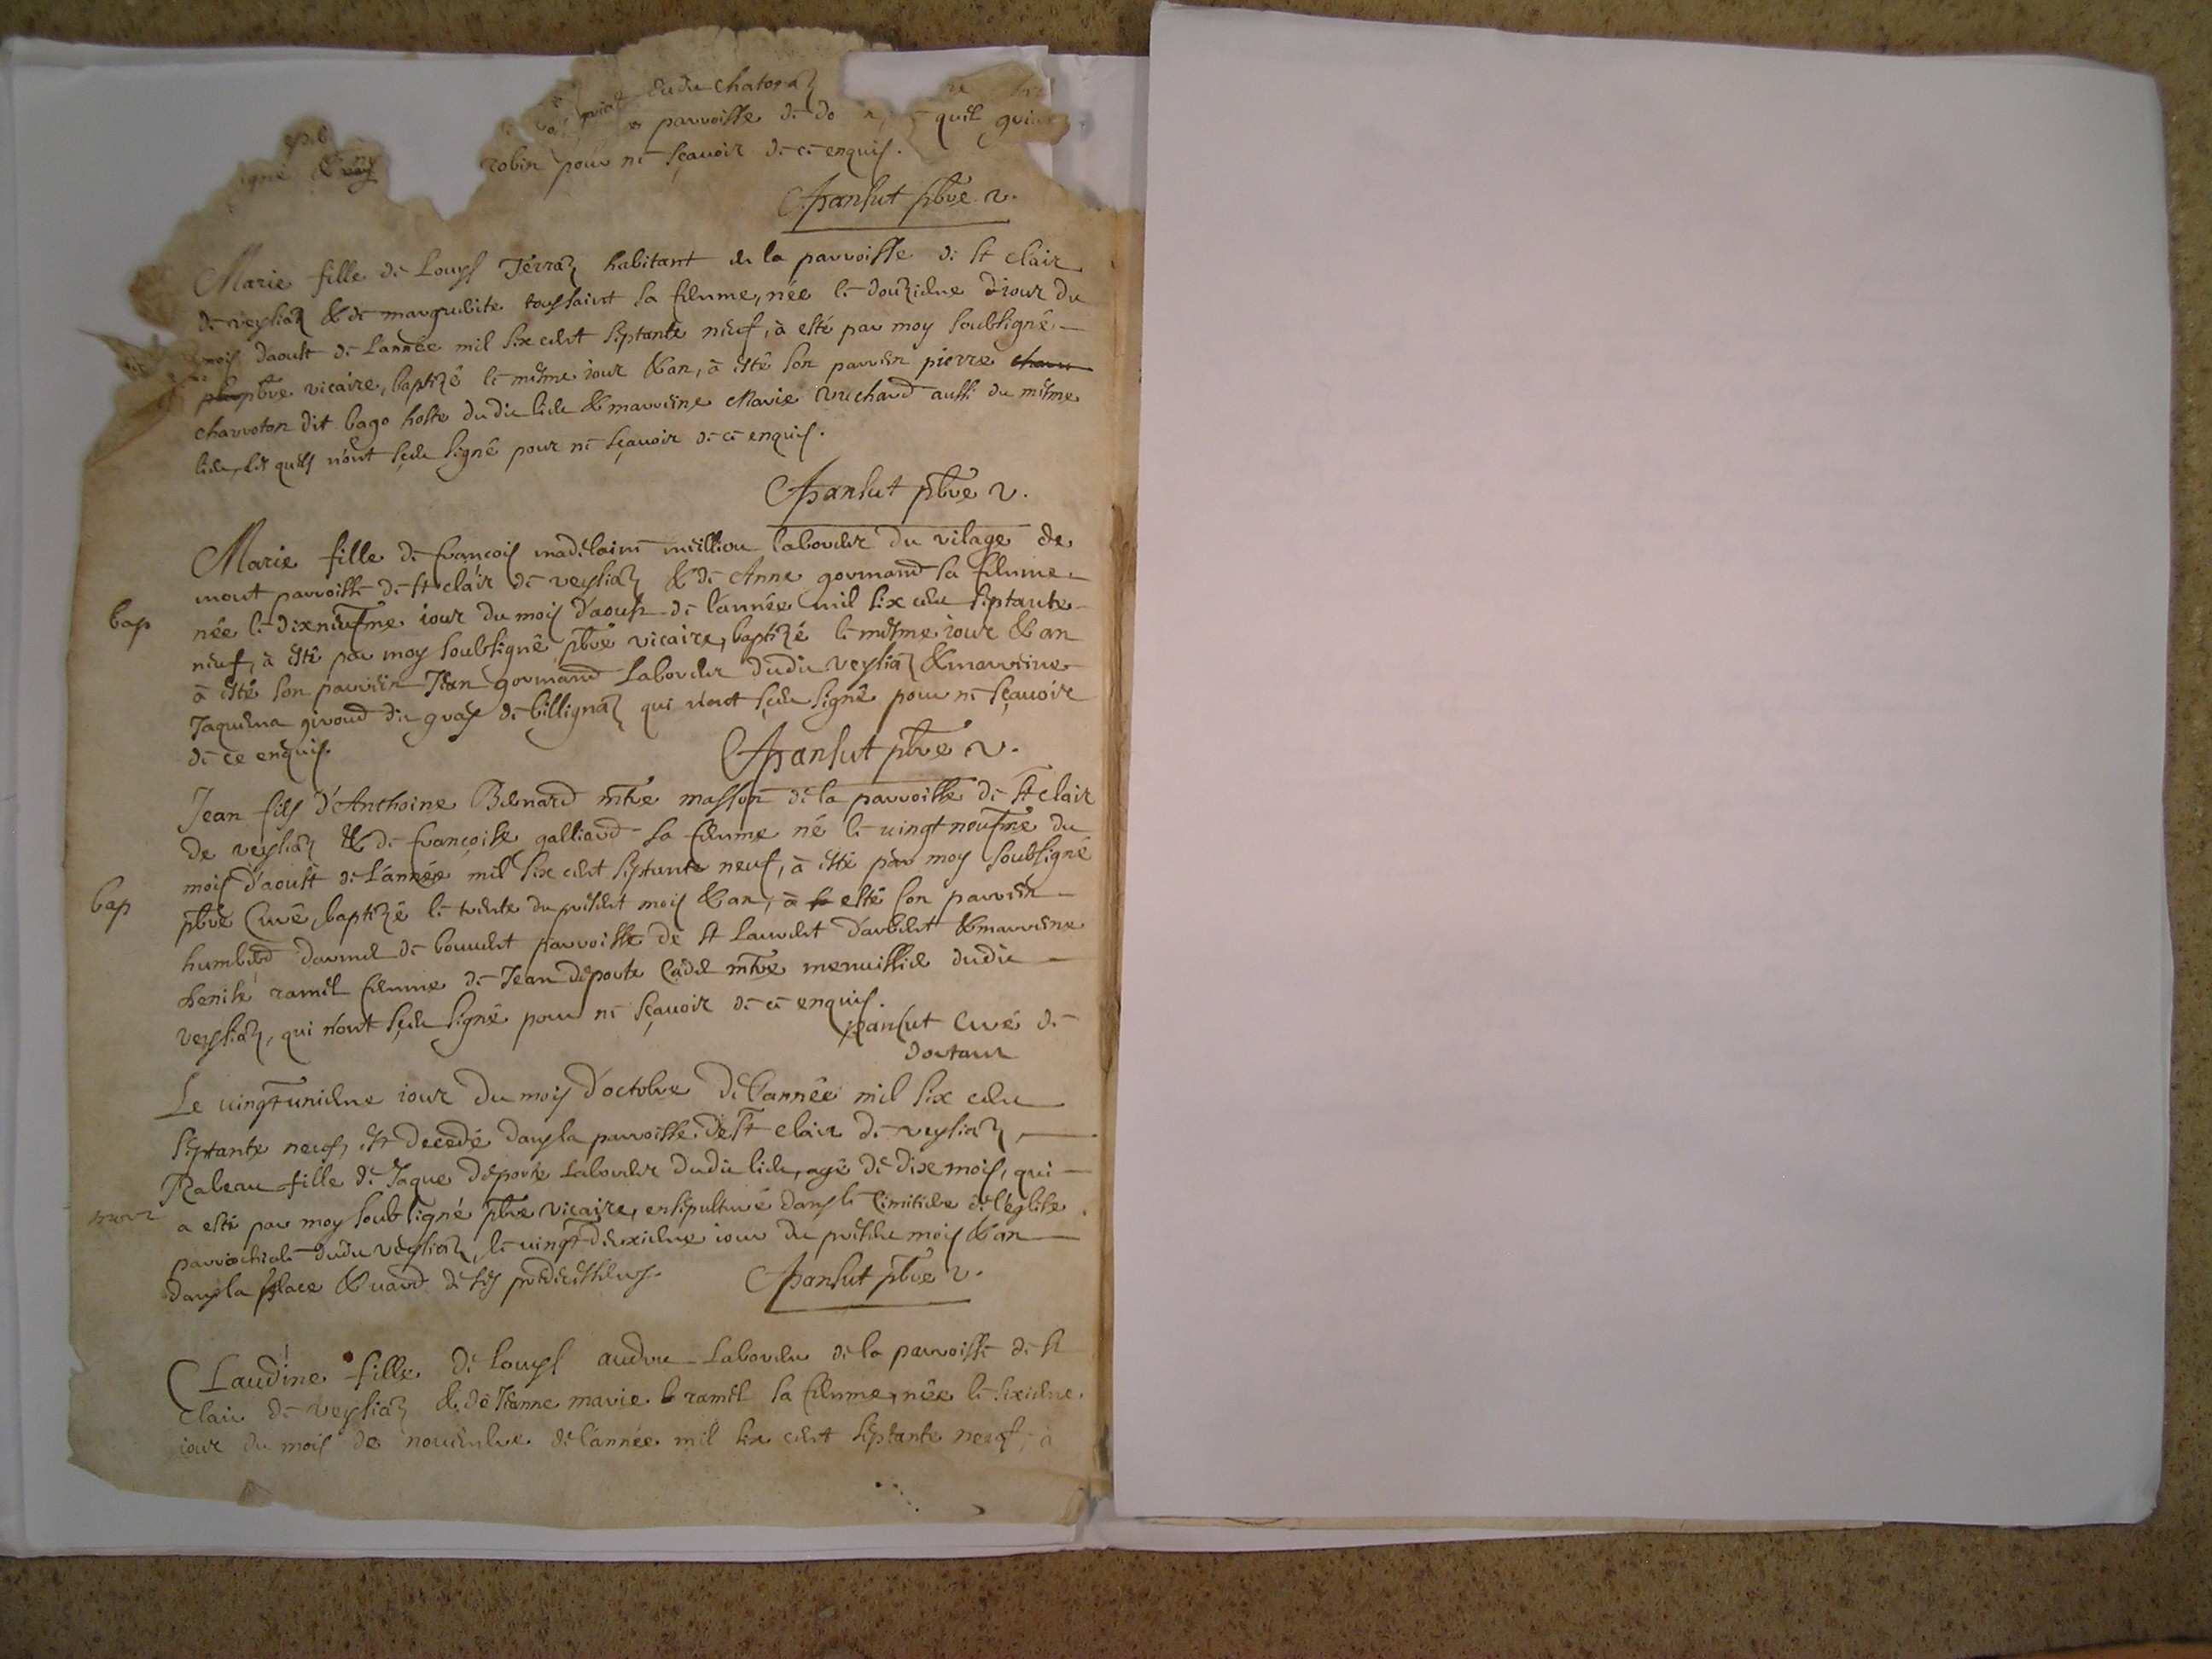 dudit chatona
parroisse de do quil
robin pour ne sçavoir de ce enquis.
pansut pbre v.
Marie fille de Louys Terraz habitant de la parroisse de st clair
de veyssiaz & de marguerite toussaint sa femme, née le douziesme iour du
mois daoust de l'année mil six cent septante neuf, à esté par moy soubsigné
pbre vicaire, baptizé le mesme iour & an, à esté son parrein pierre
charroton dit bago hoste dudit lieu & marreine Marie richard aussi du mesme
lieu, lesquels n'ont sceu signé pour ne sçavoir de ce enquis.
pansut pbre v.
Marie fille de françois madelaine meillieu laboureur du vilage de
mont parroisse de st clair de veyssiaz & de Anne gormand sa femme
née le dixneufme iour du mois d'aoust de l'année mil six cent septante
bap
neuf, à esté par moy soubsigné pbre vicaire, baptizé le mesme iour & an
à esté son parrein Jean gormand laboureur dudit veyssiaz & marreine
Jaquema giroud dit gras de billignaz qui n'ont sceu signé pour ne sçavoir
de ce enquis.
pansut pbre v.
Jean fils d'Anthoine Benard mtre masson de la parroisse de st clair
de veyssiaz & de françoise galliard sa femme né le vingt noufme du
mois d'aoust de l'année mil six cent septante neuf, à esté par moy soubsigné
bap
pbre Curé, baptizé le trente du présent mois & an, à esté son parrein
humberd de bouvent parroisse de st laurent d'arbent & marreine
denise ramel femme de Jean deporte Cadet mtre menuissier dudit
veyssiaz, qui n'ont sceu signé pour ne sçavoir de ce enquis.
pansut Curé de
dortans
Le vingt uniesme iour du mois d'octobre de l'année mil six cent
septante neuf, est decedé dans la parroisse de st clair de veyssiaz,
Isabeau fille de Jaque deporte laboureur dudit lieu, agé de dix mois, qui
mort
a esté par moy soubsigné pbre vicaire, ensepulturé dans le Cimitiere de l'eglise
parrochiale dudit veyssiaz, le vingt deuxiesme iour du présent mois & an
dans la place & vard de ses predecesseurs.
pansut pbre v.
Claudine fille de Louys audru laboureur de la parroisse de st
clair de veyssiaz & de Jeanne marie ramel sa femme, née le sixiesme
iour du mois de novembre de l'année mil six cent septante neuf, à